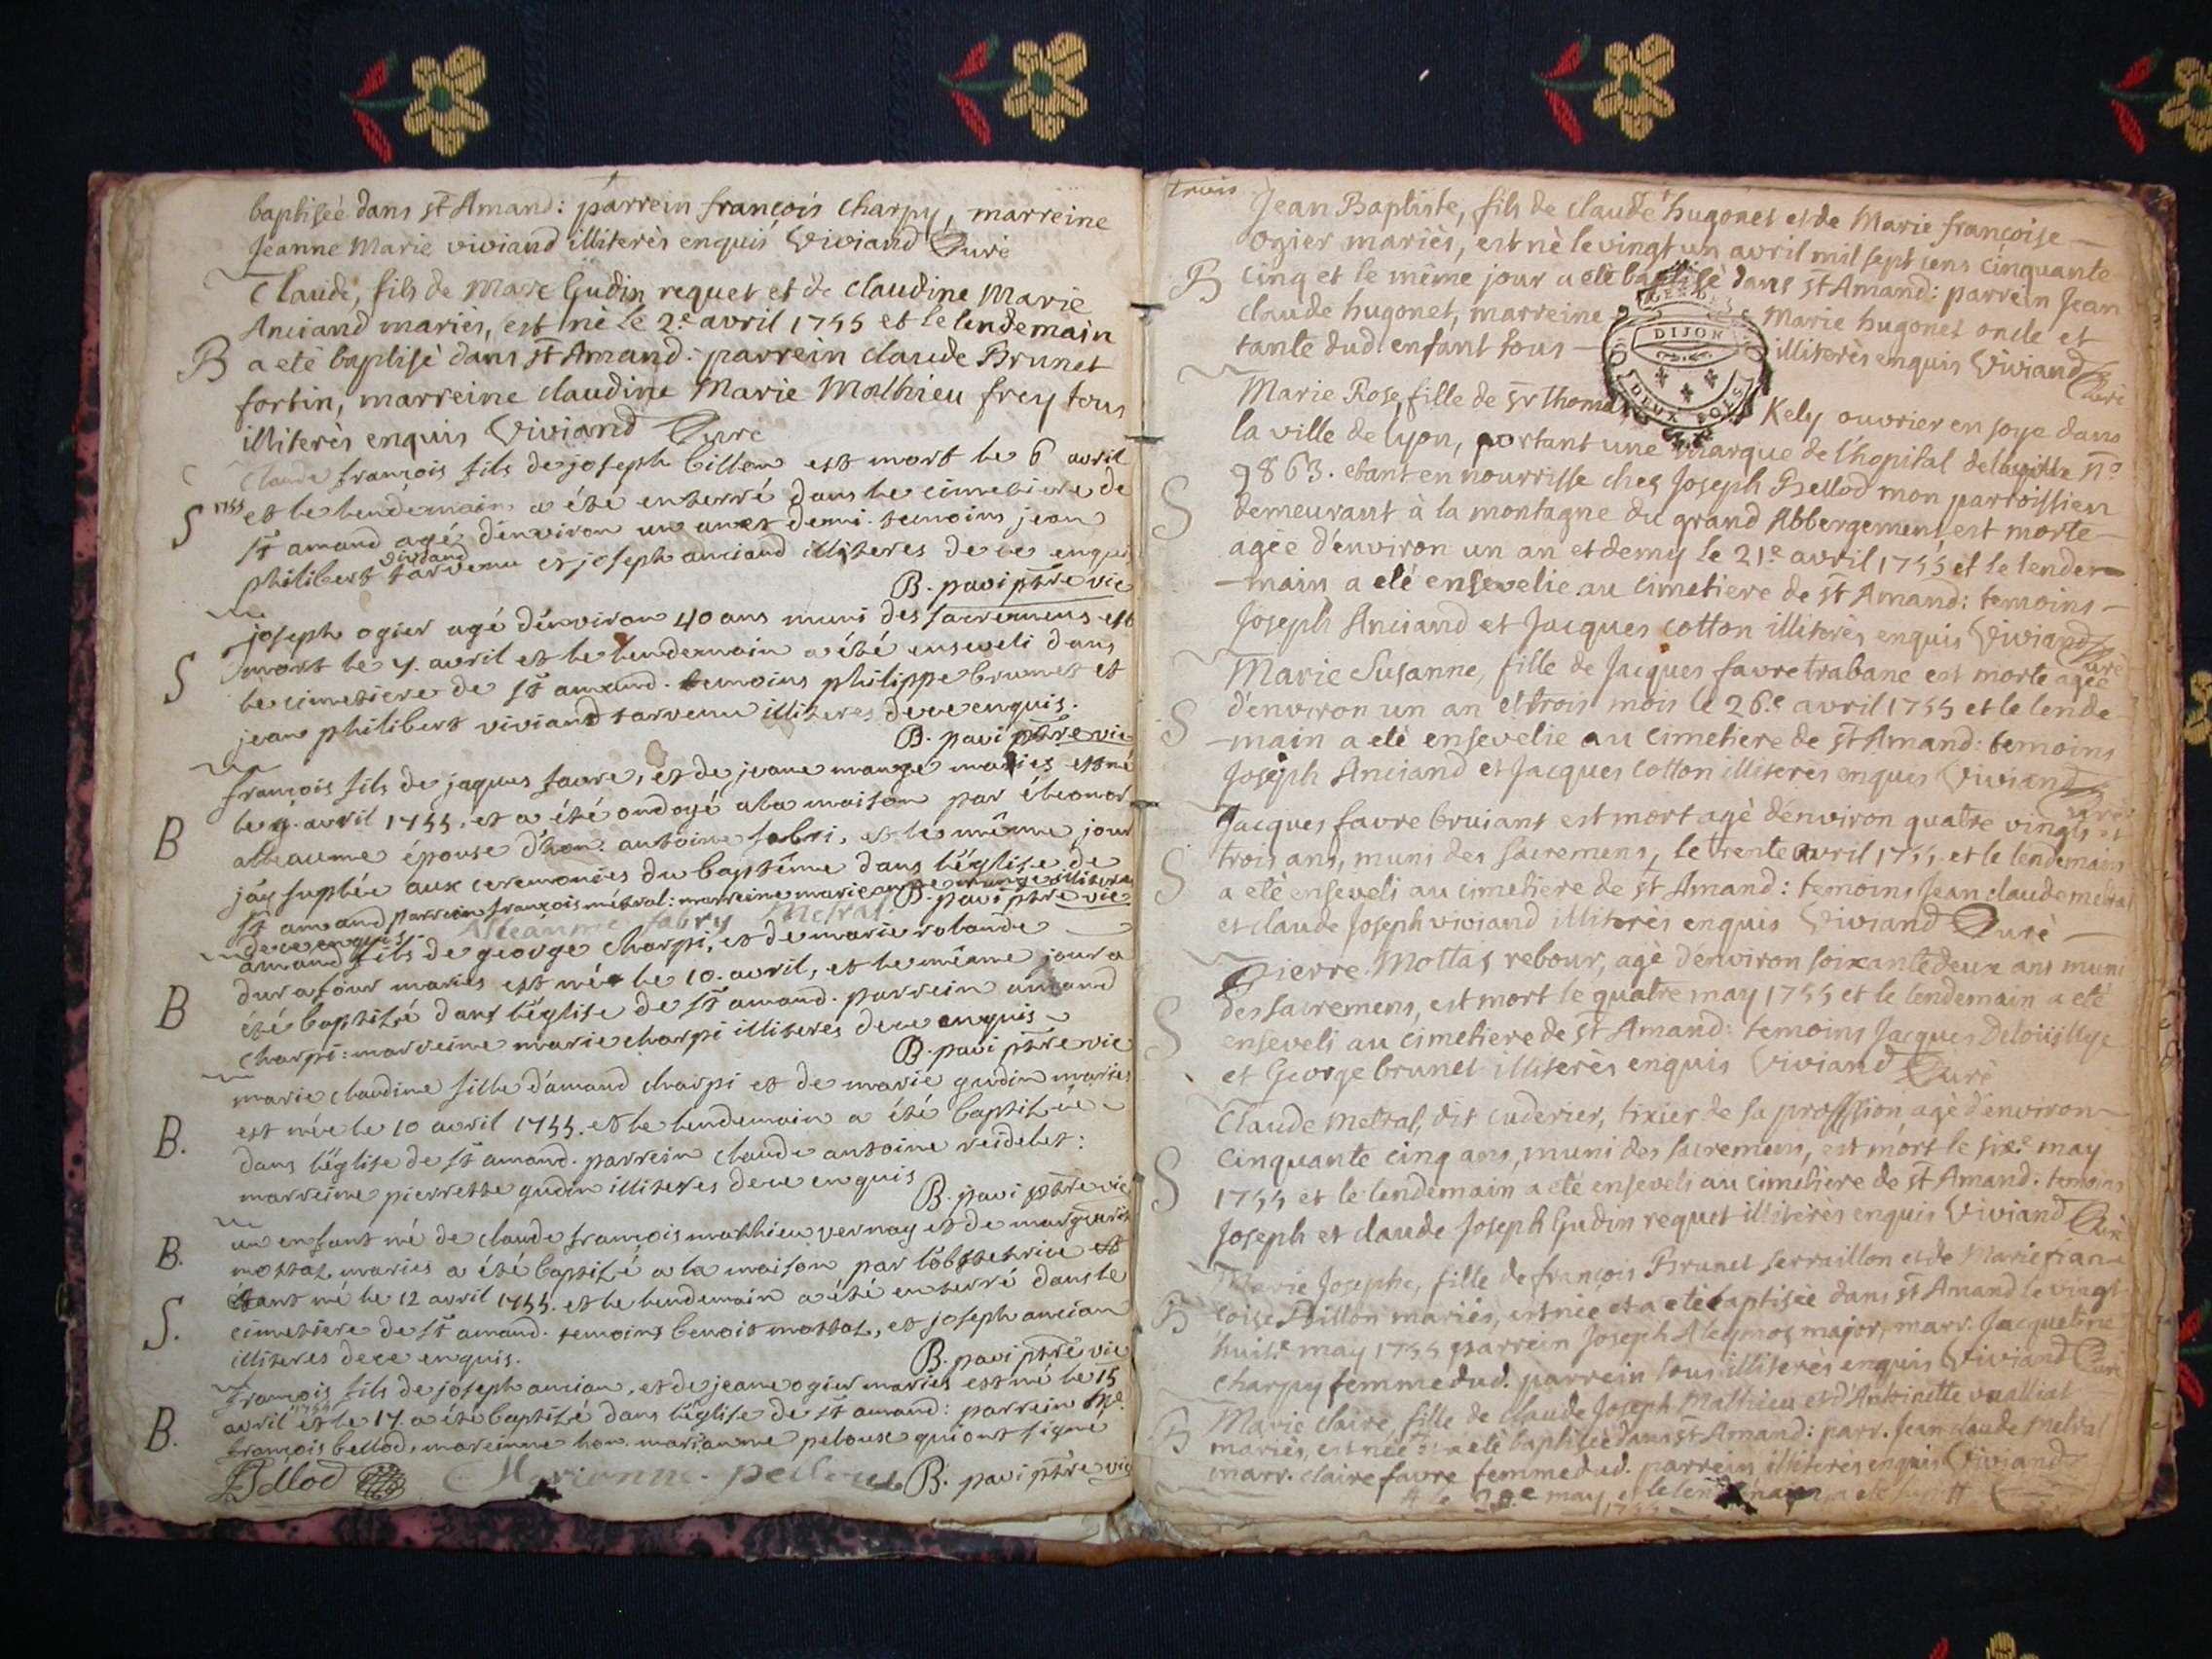 baptisèe dans st Amand: parrein françois Charpy, marreine
Jeanne Marie viviand illiterès enquis Viviand Curé
Claude, fils de Marc Gudin requet et de claudine Marie
Anciand mariès, est nè le 2.e avril 1755 et le lendemain
B a etè baptisè dans st Amand: parrein claude Brunet
fortin, marreine claudine Marie Mathieu frey tous
illiterès enquis Viviand Curé
Claude françois fils de joseph billon est mort le 6 avril
S 1755 et le lendemain a été enterré dans le cimetiere de
st amand agé d'environ un an et demi. temoins jean
viviand
philibert tarvenu et joseph anciand illiteres de ce enquis
B. pavi ptre vic
joseph ogier agé d'environ 40 ans muni des sacremens est
S mort le 7. avril et le lendemain a été enseveli dans
le cimetiere de st amand. temoins philippe brunet et
jean philibert viviand tarvenu illiteres de ce enquis.
B. pavi ptre vic
françois fils de jaques favre, et de jeane mange mariés est né
le 9. avril 1755. et a été ondoyé a la maison par éleonor
B alleaume épouse d'hon. antoine fabri, et le même jour
jay suplée aux ceremonies du baptême dans l'église de
st amand parrein françois métral: marreine marie anne mange illiteres
de ce enquis B. pavi ptre vic
Alleaume fabry Metral
amand fils de george charpi, et de marie rolande
dur afour mariés est né le 10. avril, et le même jour a
B été baptisé dans l'église de st amand. parrein amand
charpi: marreine marie charpi illiteres de ce enquis
B. pavi ptre vic
marie claudine fille d'amand charpi et de marie gudin mariés
est née le 10 avril 1755. et le lendemain a été baptisée
B. dans l'église de st amand. parrein claude antoine reidelet:
marreine pierrette gudin illiteres de ce enquis
B. pavi ptre vic
un enfant né de claude françois mathieu vernay et de marguerite
B. mottat mariés a été baptisé a la maison par l'obstetrice et
étant né le 12 avril 1755. et le lendemain a été enterré dans le
S. cimetiere de st amand. temoins benoit mottat, et joseph ancian
illiteres de ce enquis.
B. pavi ptre vic
françois fils de joseph ancian, et de jeane ogier mariés est né le 15
avril et le 17. a été baptisé dans l'église de st amand: parrein Me.
B. françois bellod, mareinne hon. marianne peloux qui ont signe
Bellod Marianne peloux B. pavi ptre vic
trois
Jean Baptiste, fils de claude hugonet et de Marie françoise
Ogier mariès, est nè le vingt un avril mil sept cens cinquante
B cinq et le même jour a etè baptisè dans st Amand: parrein Jean
claude hugonet, marreine Marie hugonet oncle et
tante dud. enfant tous illiterès enquis Viviand Curé
GEN. DES
DIJON
DEUX SOLS
Marie Rose, fille de sr thomas Kely ouvrier en soye dans
la ville de lyon, portant une marque de l'hopital de la ville no.
9863. etant en nourrisse chez Joseph Bellod mon parroissien
S demeurant à la montagne du grand Abbergement, est morte
agèe d'environ un an et demy le 21.e avril 1755 et le lende-
-main a etè ensevelie au cimetiere de st Amand: temoins
Joseph Anciand et Jacques cotton illiterès enquis Viviand Curé
Marie Susanne, fille de Jacques favre trabane est morte agèe
d'environ un an et trois mois le 26.e avril 1755 et le lende-
S -main a etè ensevelie au cimetiere de st Amand: temoins
Joseph Anciand et Jacques Cotton illiterès enques Viviand Curé
Jacques favre bruiant est mort agè d'environ quatre vingts et
trois ans, muni des sacremens, le trente avril 1755, et le lendemain
S a etè enseveli au cimetiere de st Amand: temoins Jean claude metral
et claude Joseph viviand illiterès enquis Viviand Curè
Pierre Mottas rebour, agè d'environ soixante deux ans muni
des sacremens, est mort le quatre may 1755 et le lendemain a etè
S enseveli au cimetiere de st Amand: temoins Jacques
et George brunet illiterès enquis Viviand Curè
Claude Metral, dit cuderier, tixier de sa proffssion agè d'environ
cinquante cinq ans, muni des sacremens, est mort le six.e may
S 1755 et le lendemain a etè enseveli au cimetiere de st Amand: temoins
Joseph et claude Joseph Gudin requet illiterès enquis Viviand Curé
Marie Josephe, fille de françois Brunet serraillon et de Marie fran-
B çoise Billon mariès, est nèe et a etè baptisèe dans st Amand le vingt
huit.e may 1755 parrein Joseph major, marr. Jacqueline
charpy femme dud. parrein tous illiterès enquis Viviand Curé
Marie claire, fille de claude Joseph Mathieu et d'Antoinette vualliat
B mariès, est nèe # a etè baptisèe dans st Amand: parr. Jean claude Metral
marr. claire favre femme dud. parrein illiterès enquis Viviand
# le 28.e may 1755 et le lendemain